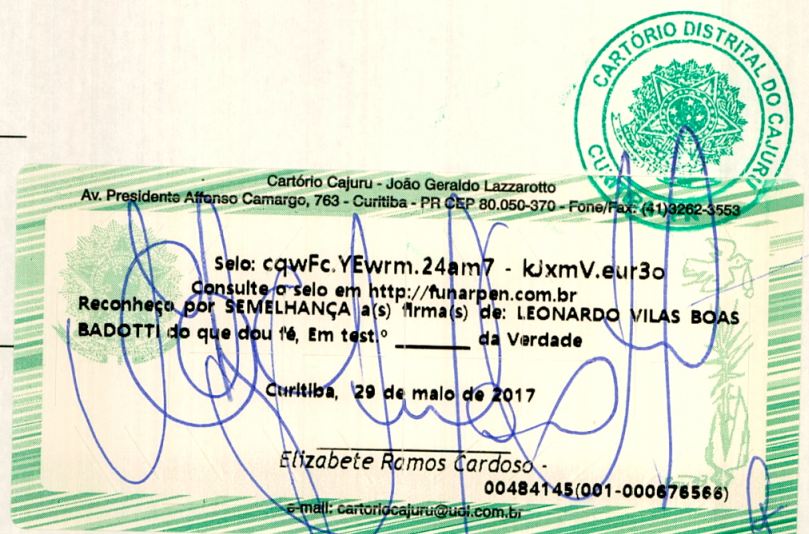 CARTÓRIO DISTRITAL DO CAJURU
Cartório Cajuru - João Geraldo Lazzarotto
Av. Presidente Affonso Camargo, 763 - Curitiba - PR CEP 80.050-370 - Fone/Fax: (41)3262-3553
Selo: cqwFc.YEwrm.24am7 - kJxmV.eur3o
Consulte o selo em http://funarpen.com.br
Reconheço por SEMELHANÇA a(s) firma(s) de: LEONARDO VILAS BOAS
BADOTTI do que dou fé, Em test.º ________ da Verdade
Curitiba, 29 de maio de 2017
Elizabete Ramos Cardoso -
00484145(001-000676566)
e-mail: cartoriocajuru@uol.com.br